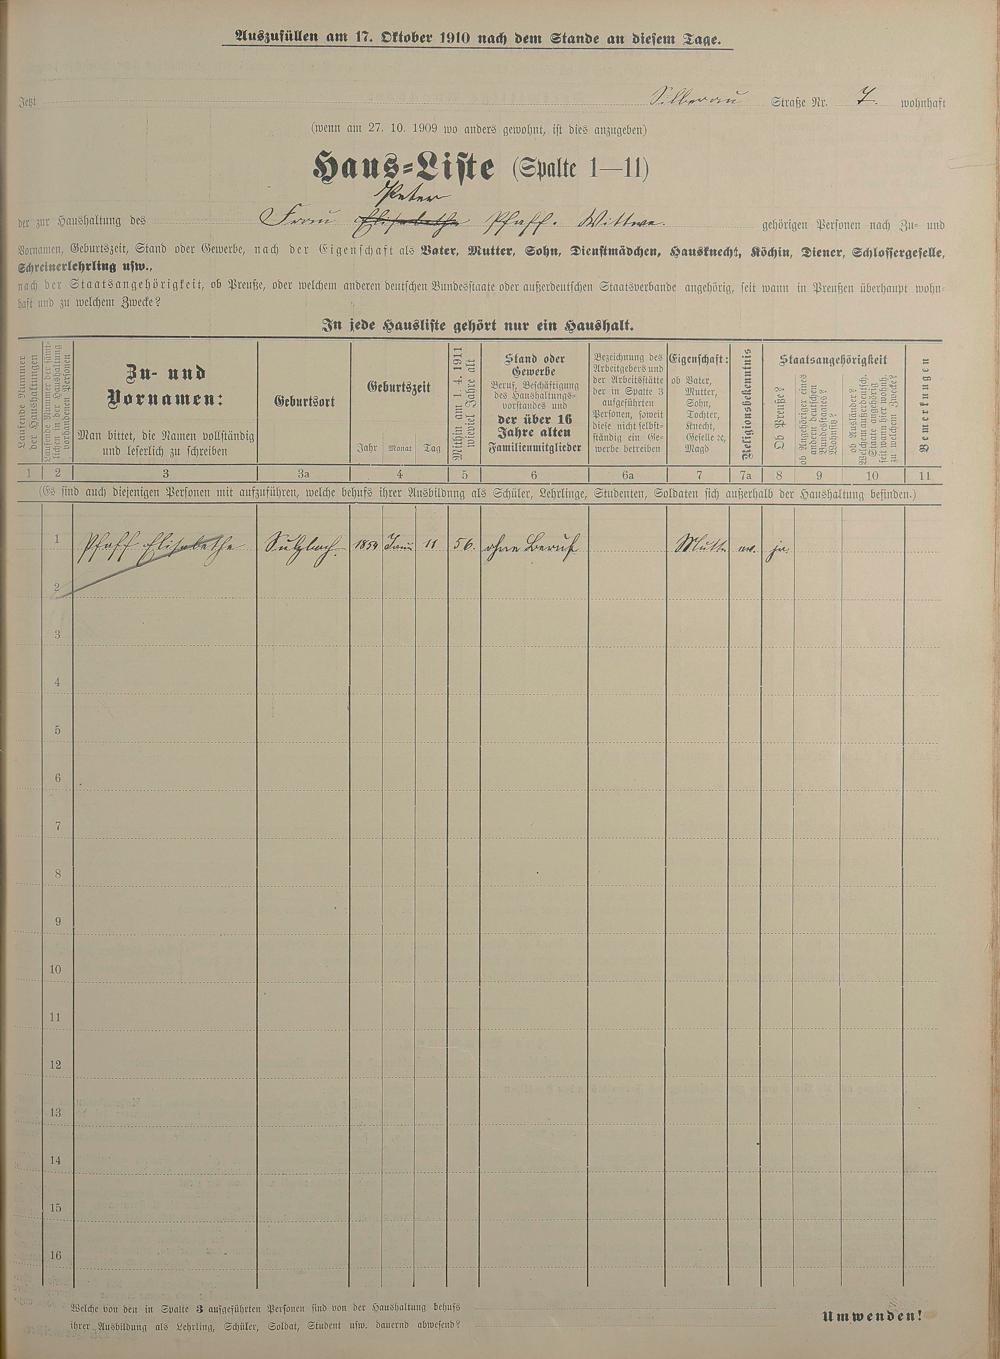 Auszufüllen am 17. Oktober 1910 nach dem Stande an diesem Tage.
Jetzt Silberau Straße Nr. 7. wohnhaft
(wenn am 27. 10. 1909 wo anders gewohnt, ist dies anzugeben)
Haus=Liste (Spalte 1—11)
Peter
der zur Haushaltung des Frau Elisabetha Pfaff. Wittwe. gehörigen Personen nach Zu- und
Vornamen, Geburtszeit, Stand oder Gewerbe, nach der Eigenschaft als Vater, Mutter, Sohn, Dienstmädchen, Hausknecht, Köchin, Diener, Schlossergeselle,
Schreinerlehrling usw.,
nach der Staatsangehörigkeit, ob Preuße, oder welchem anderen deutschen Bundesstaate oder außerdeutschen Staatsverbande angehörig, seit wann in Preußen überhaupt wohn-
haft und zu welchem Zwecke?
In jede Hausliste gehört nur ein Haushalt.
Laufende Nummer
der Haushaltungen
laufende Nummer der sämt-
lichen in der Haushaltung
vorhandenen Personen
Zu- und
Vornamen:
Man bittet, die Namen vollständig
und leserlich zu schreiben
Geburtsort
Geburtszeit
Jahr Monat Tag
Mithin am 1. 4. 1911
wieviel Jahre alt
Stand oder
Gewerbe
Beruf, Beschäftigung
des Haushaltungs-
vorstandes und
der über 16
Jahre alten
Familienmitglieder
Bezeichnung des
Arbeitgebers und
der Arbeitsstätte
der in Spalte 3
aufgeführten
Personen, soweit
diese nicht selbst-
ständig ein Ge-
werbe betreiben
Eigenschaft:
ob Vater,
Mutter,
Sohn,
Tochter,
Knecht,
Geselle ec,
Magd
Religionsbekenntnis
Staatsangehörigkeit
Ob Preuße?
ob Angehöriger eines
andern deutschen
Bundesstaates?
Wohnsitz?
ob Ausländer?
Welchem außerdeutsch.
Staate angehörig
seit wann hier wohnh.
zu welchem Zwecke?
Bemerkungen
1 2 3 3a 4 5 6 6a 7 7a 8 9 10 11
(Es sind auch diejenigen Personen mit aufzuführen, welche behufs ihrer Ausbildung als Schüler, Lehrlinge, Studenten, Soldaten sich außerhalb der Haushaltung befinden.)
1 Pfaff Elisabethe Sulzbach 1854 Juni 11 56. ohne Beruf Mutter ev. ja.
2
3
4
5
6
7
8
9
10
11
12
13
14
15
16
Welche von den in Spalte 3 aufgeführten Personen sind von der Haushaltung behufs
ihrer Ausbildung als Lehrling, Schüler, Soldat, Student usw. dauernd abwesend?
Umwenden!